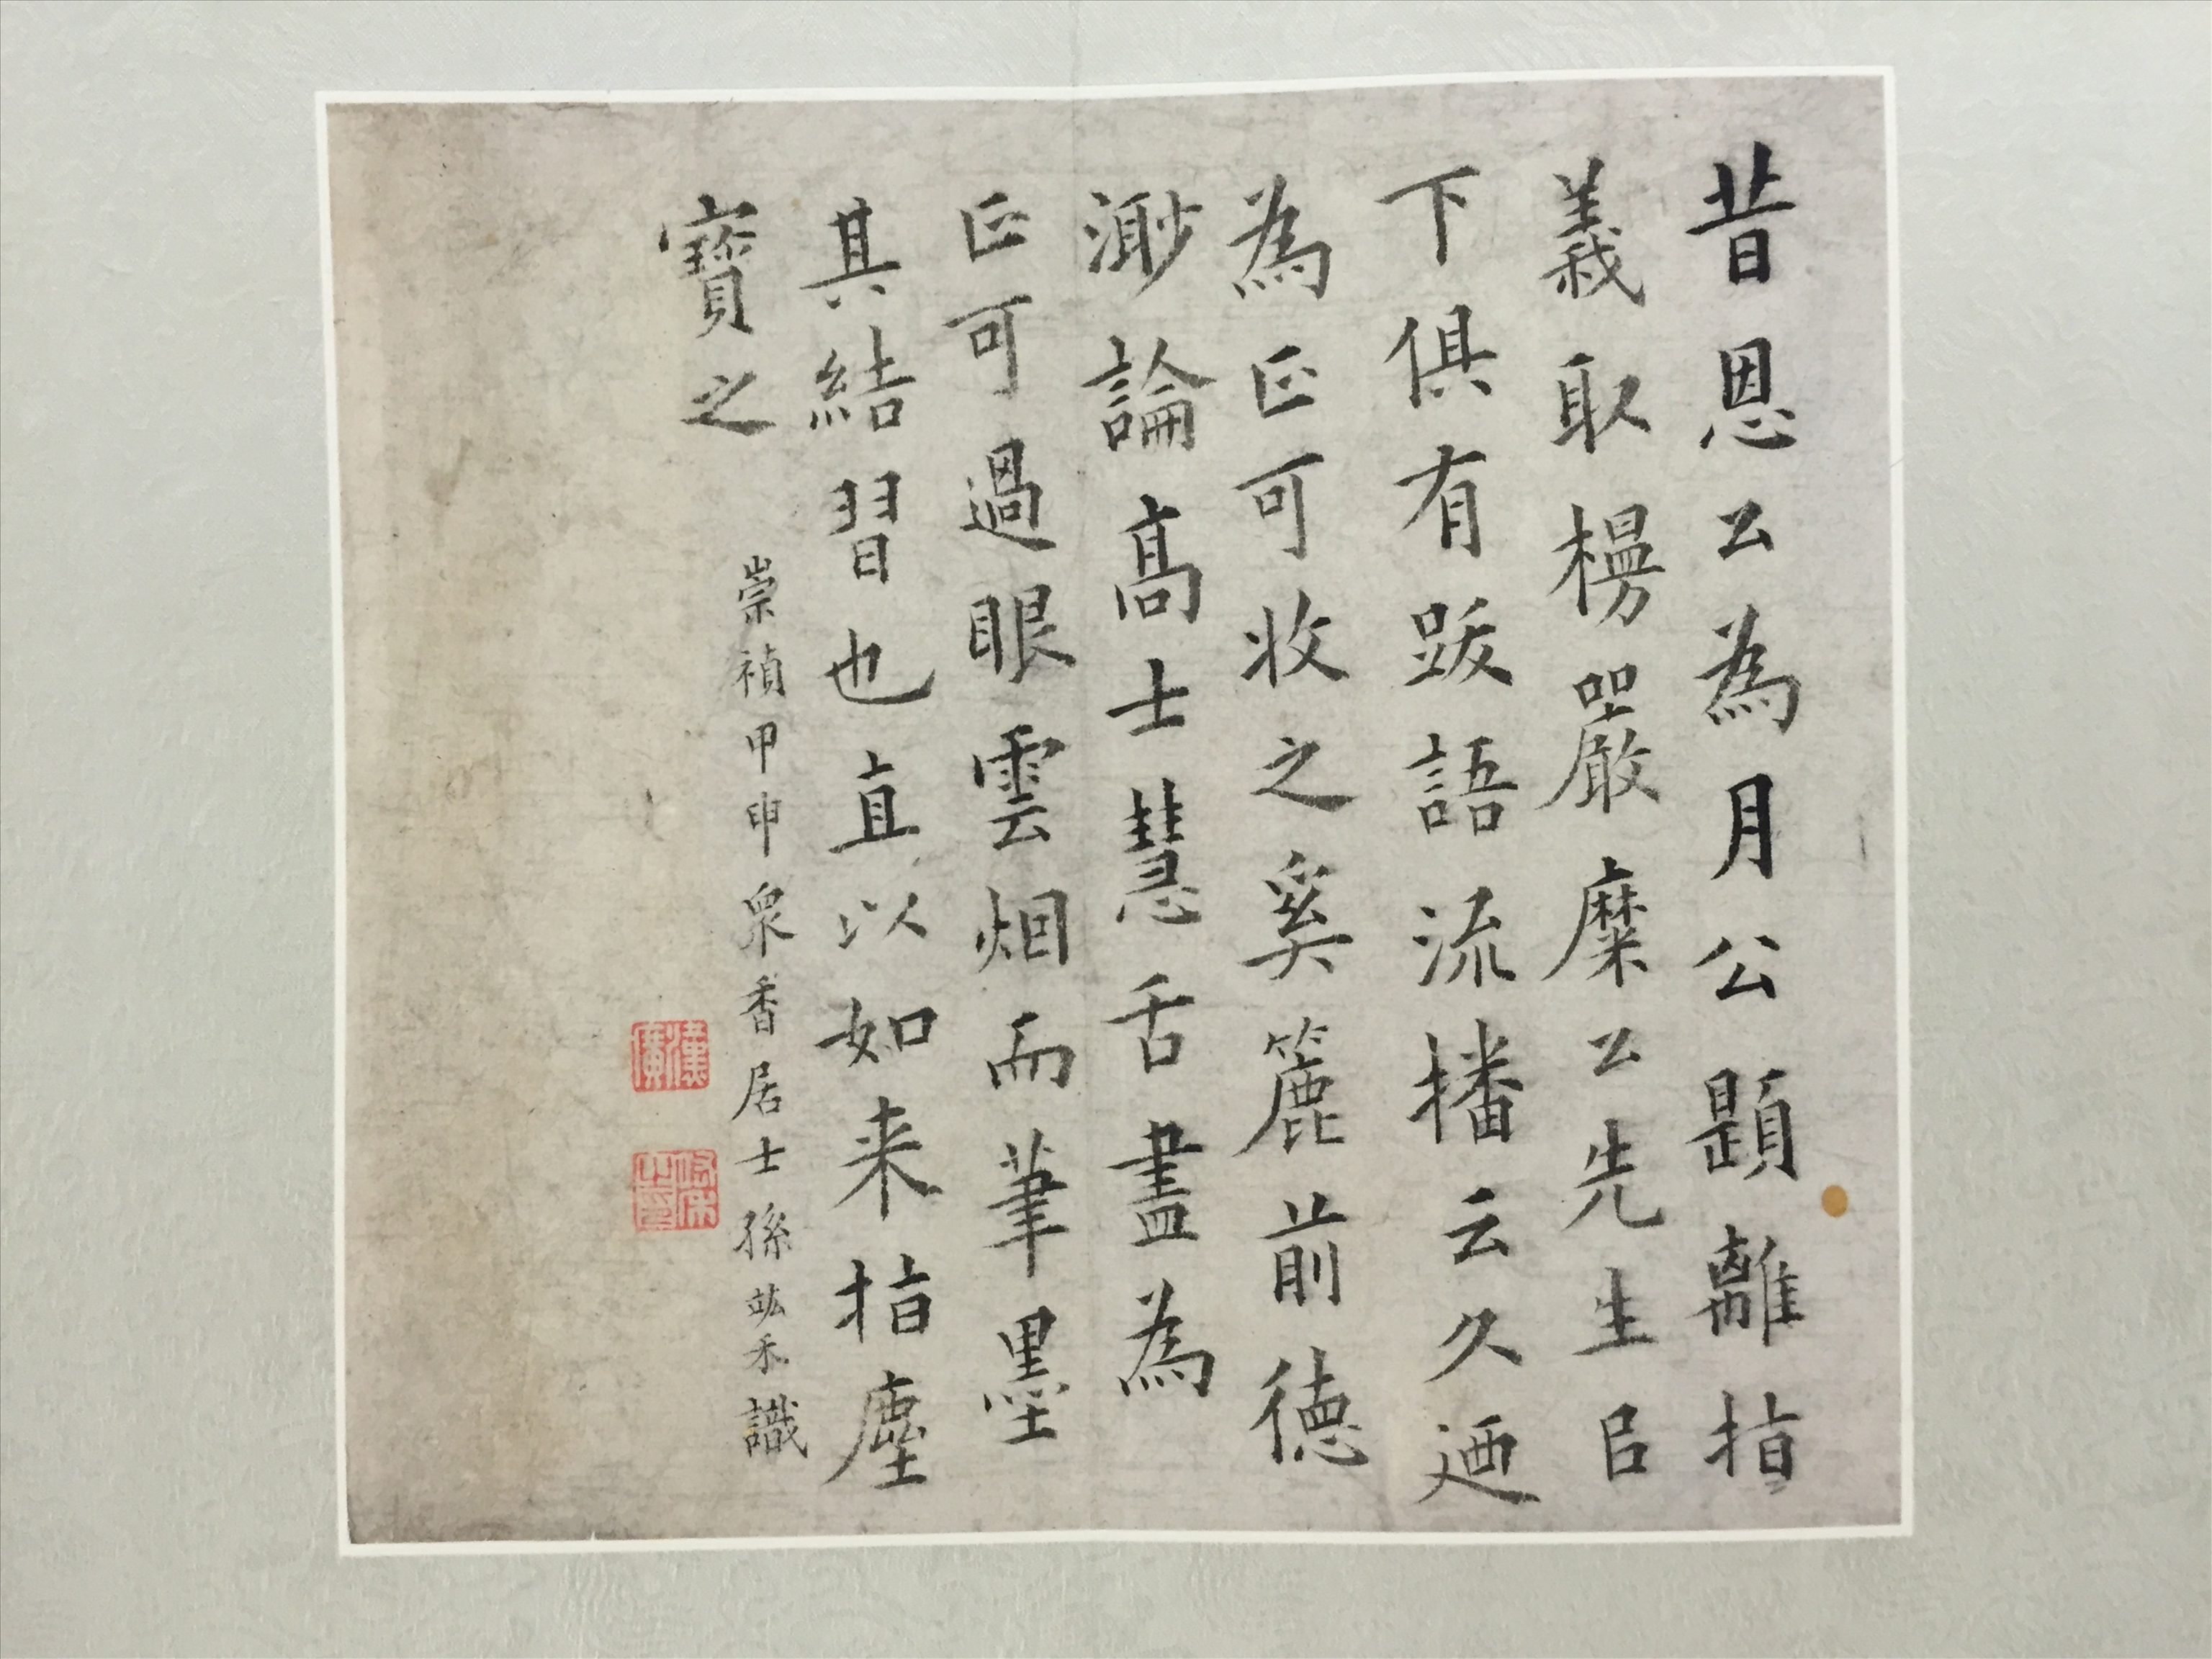 昔恩公為月公題離指
義取楞嚴麋公先生㠯
下俱有跋語流播云久迺
為叵可收之奚簏前德
渺論高士慧舌盡為
叵可過眼雲烟而筆墨
其結習也直以如来指塵
寶之
崇禎甲申眾香居士孫竑禾識